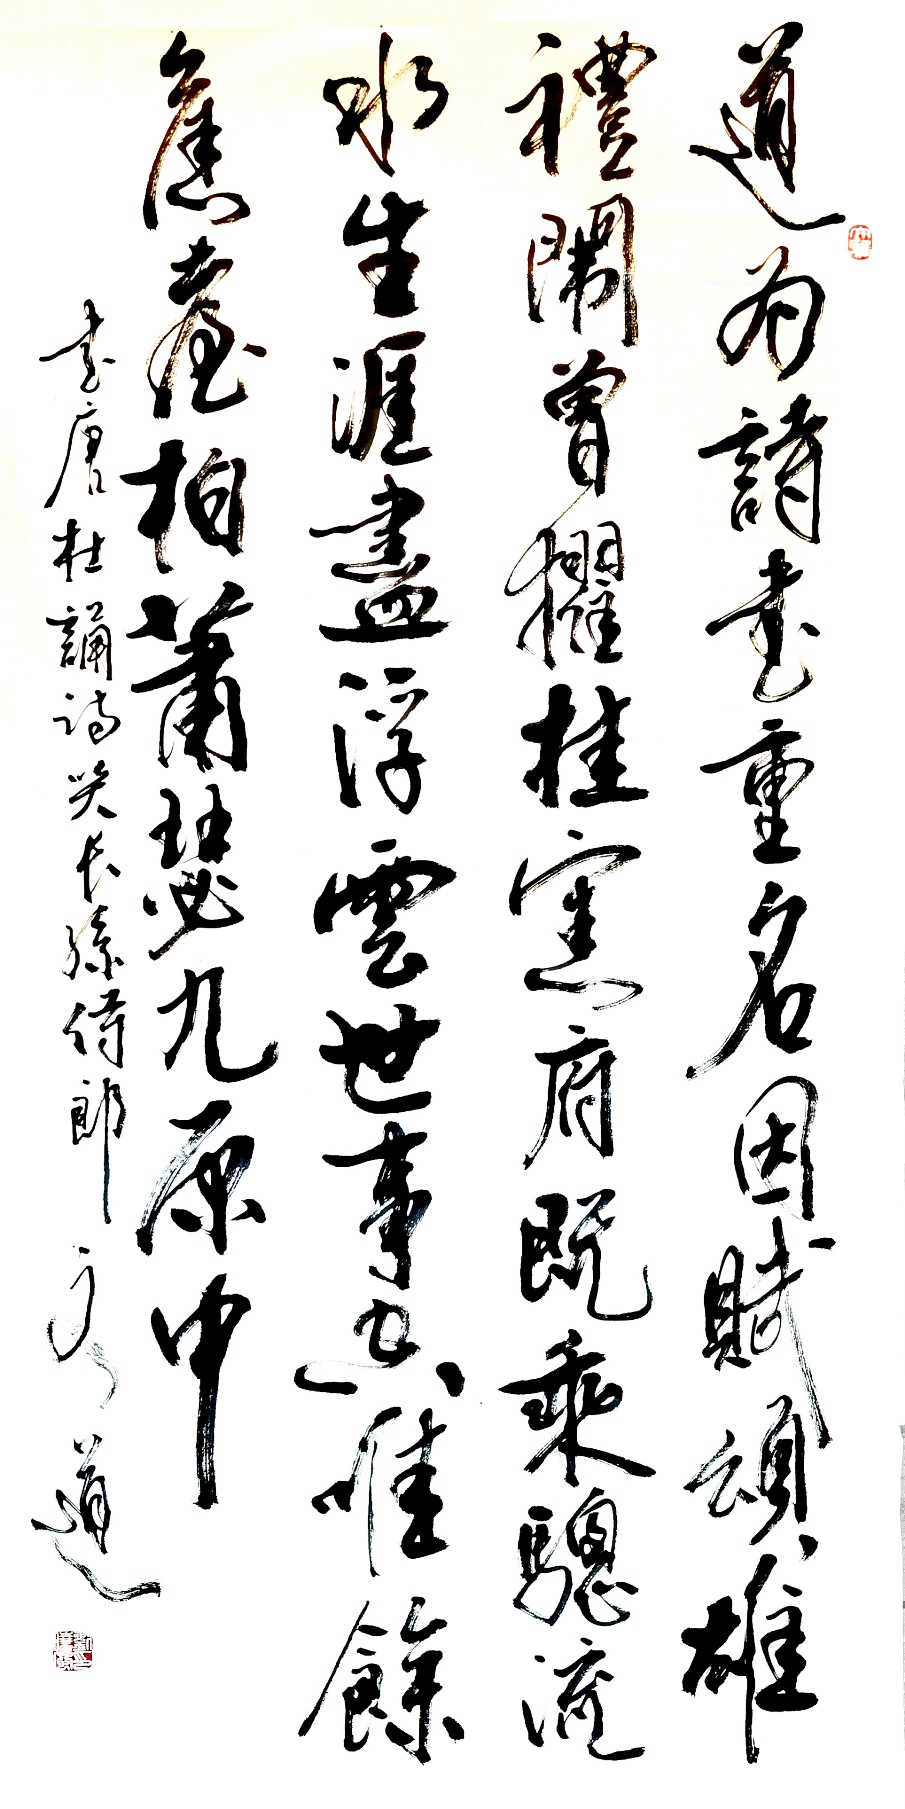 道为詩書重名因賦頌雄
禮闈曾擢桂憲府既乘驄流
水生涯盡浮雲世事空唯餘
舊臺柏蕭瑟九原中
书唐杜誦诗哭长孫侍郎 道